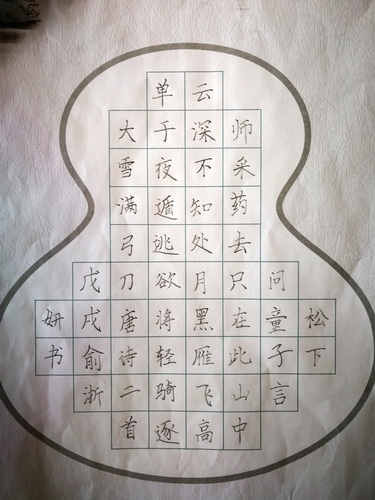 松下
问童子言
师采药去只在此山中
云深不知处月黑雁飞高
单于夜遁逃欲将轻骑逐
大雪满弓刀唐诗二首
戊戌俞浙
妍书